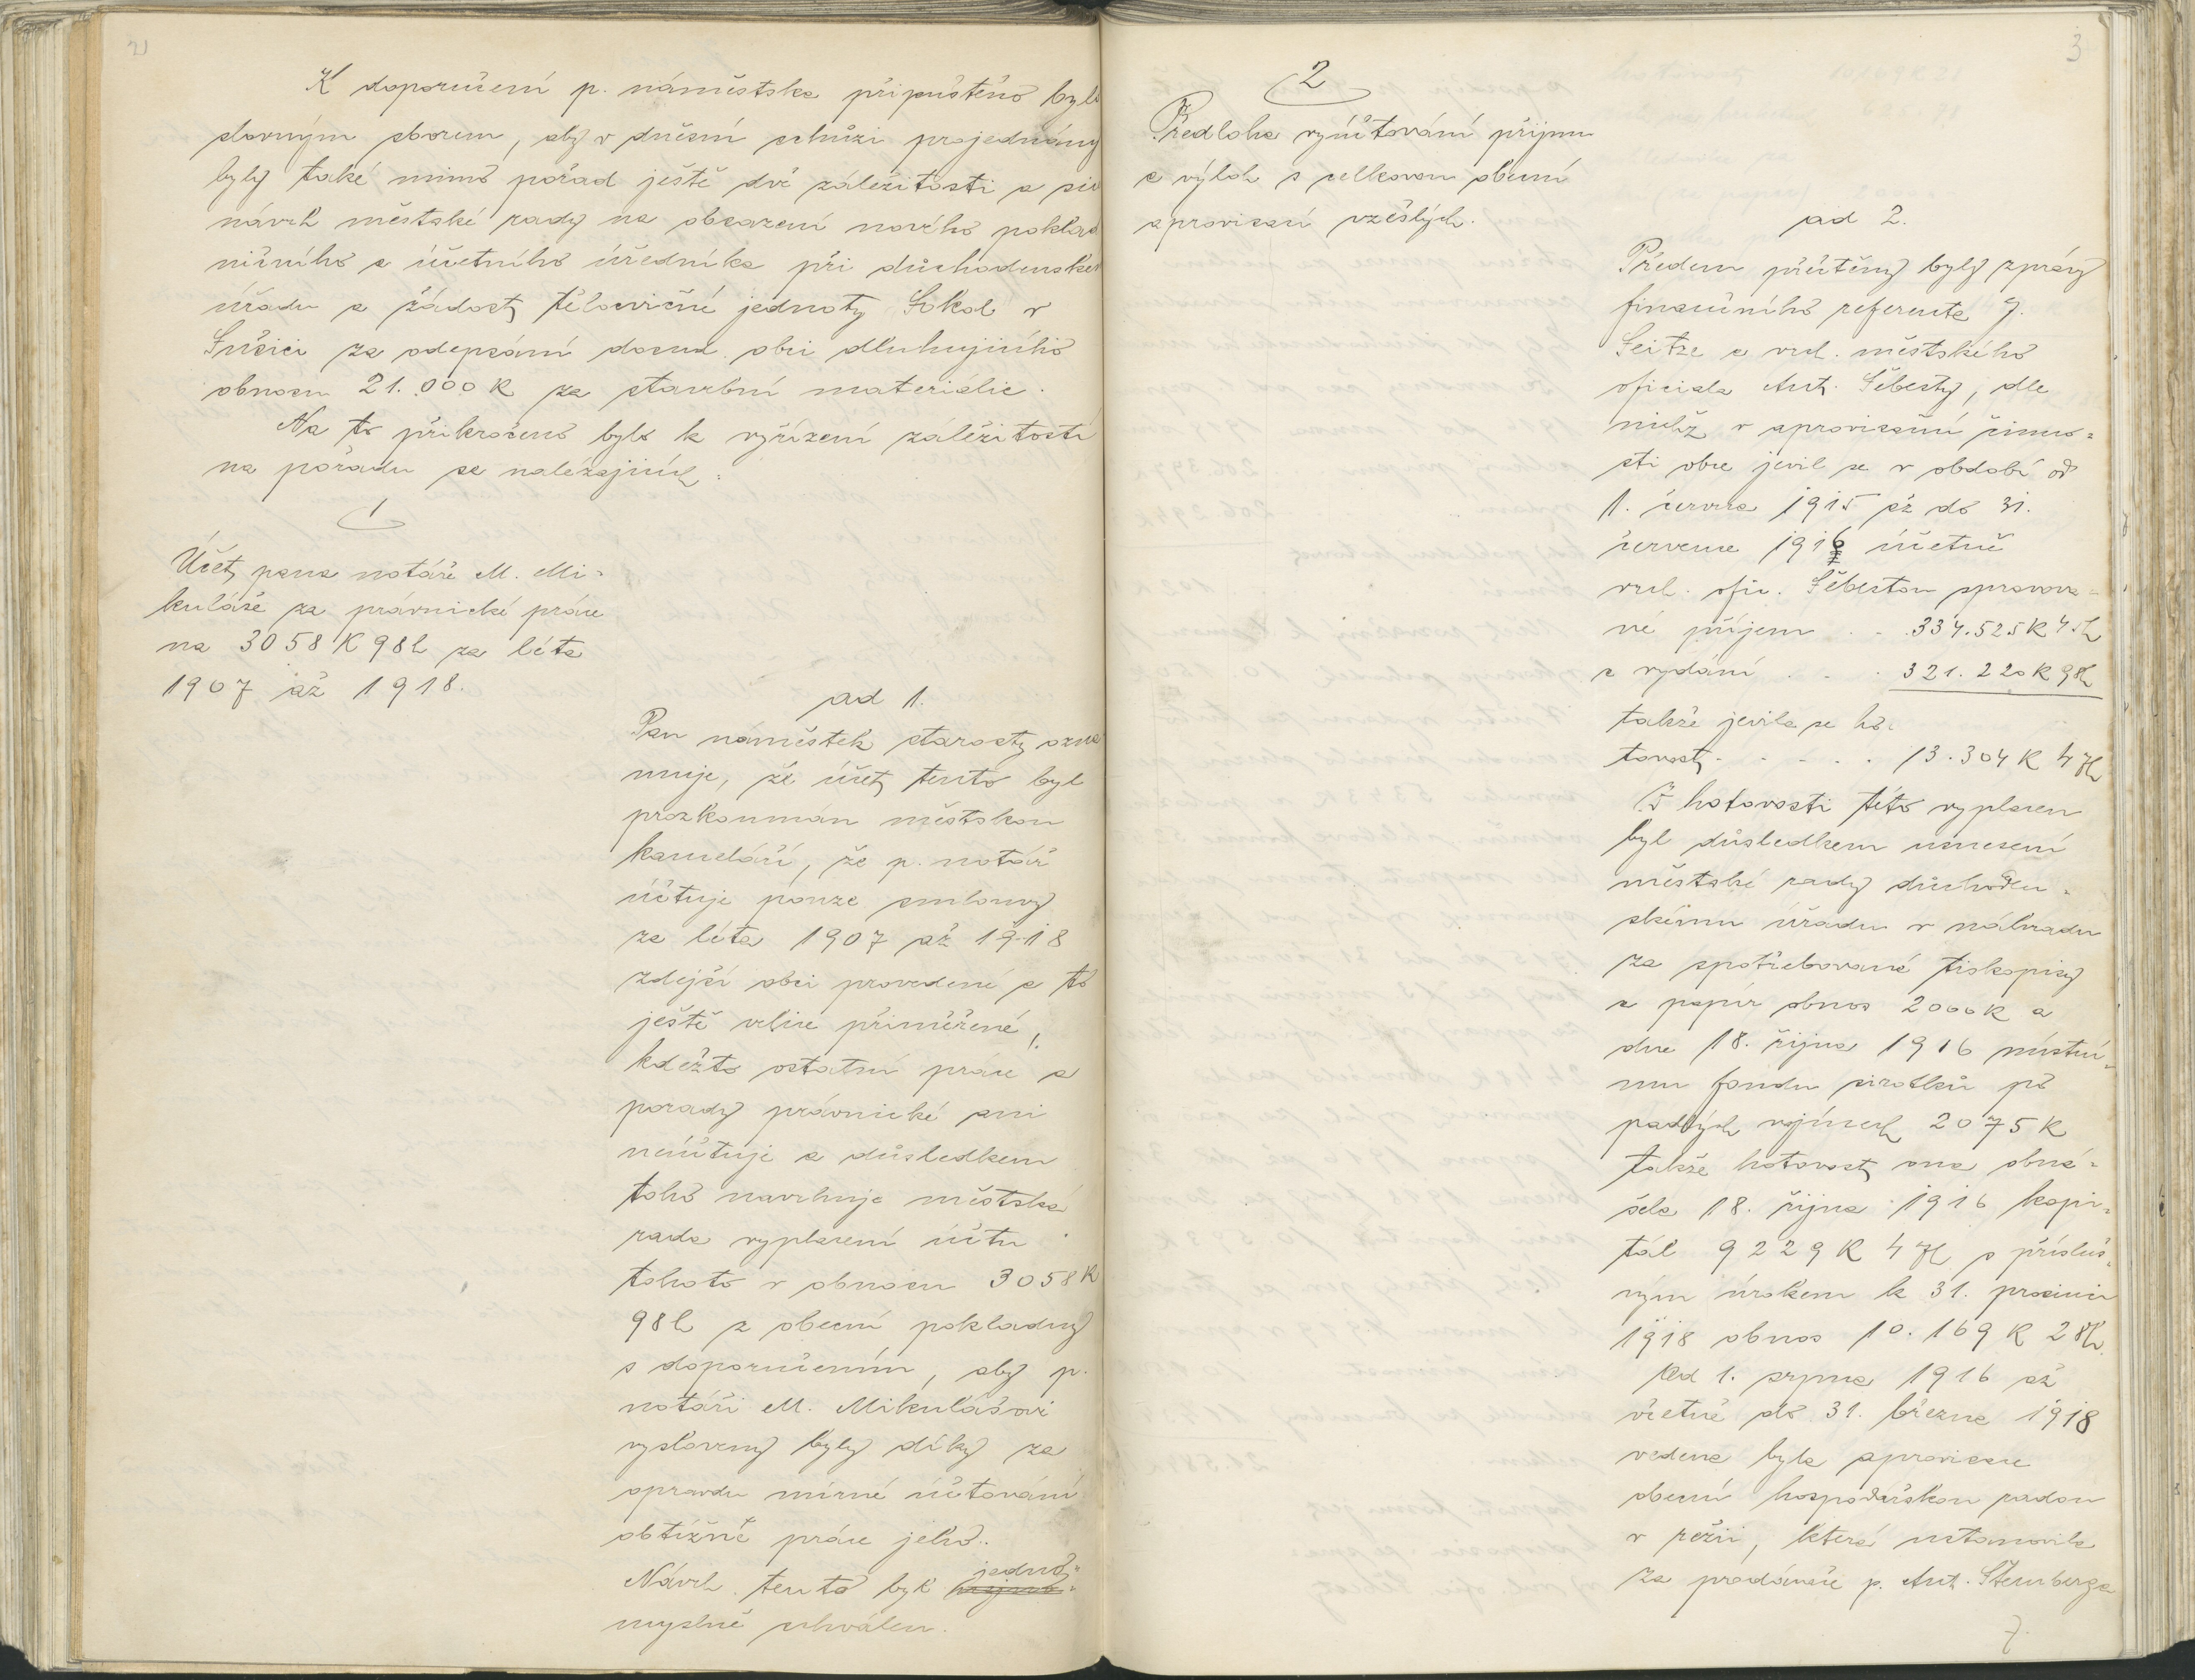 K doporučení p. náměstka připuštěno bylo
slavným sborem, aby v dnešní schůzi projednány
byly také mimo pořad ještě dvě záležitosti a sice
návrh městské rady na obsazení nového poklad
ničního a účetního úředníka při důchodenském
úřadu a žádost tělocvičné jednoty Sokol v
Sušici za odepsání dosud obci dluhujícího
obnosu 21.000 K za stavební materiálie.
Na to přikročeno bylo k vyřízení záležitostí
na pořadu se nalézajících:
1
Účet pana notáře M. Mi-
kuláše za právnické práce
na 3058 K 98 h za léta
1907 až 1918.
ad 1.
Pan náměstek starosty ozna
muje, že účet tento byl
prozkoumán městskou
kanceláří, že p. notář
účtuje pouze smlouvy
za léta 1907 až 1918
zdejší obci provedené a to
ještě velice přiměřeně,
kdežto ostatní práce a
porady právnické ani
neúčtuje a důsledkem
toho navrhuje městská
rada vyplacení účtu
tohoto v obnosu 3058 K
98 h z obecní pokladny
s doporučením, aby p.
notáři M. Mikulášovi
vysloveny byly díky za
opravdu mírné účtování
obtížné práce jeho.
Návrh tento byl jedno-
myslně schválen.
3
2
Předloha vyúčtování příjmu
a výloh s celkovou obecní
aprovisací vzešlých.
ad 2.
Předem přečteny byly zprávy
finančního referenta J.
Seitze a vrch. městského
oficiala Ant. Šebesty, dle
nichž v aprovisační činno-
sti obce jevil se v období od
1. června 1915 až do 31.
července 1916 účetně
vrch. ofic. Šebestou spravova-
né příjem . . 334.525 K 45 h
a vydání . . . 321.220 K 98 h
takže jevila se ho-
tovost . . . . . 13.304 K 47 h
Z hotovosti této vyplacen
byl důsledkem usnesení
městské rady důchoden-
skému úřadu v náhradu
za spotřebované tiskopisy
a papír obnos 2000 K a
dne 18. října 1916 místní-
mu fondu sirotků po
padlých vojínech 2075 K
takže hotovost ona obná-
šela 18. října 1916 kapi-
tál 9229 K 47 h s přísluš-
ným úrokem k 31. prosinci
1918 obnos 10.169 K 28 h.
Od 1. srpna 1916 až
včetně do 31. března 1918
vedena byla aprovisace
obecní hospodářskou radou
v režii, která ustanovila
za prodavače p. Ant. Šternberga
7.